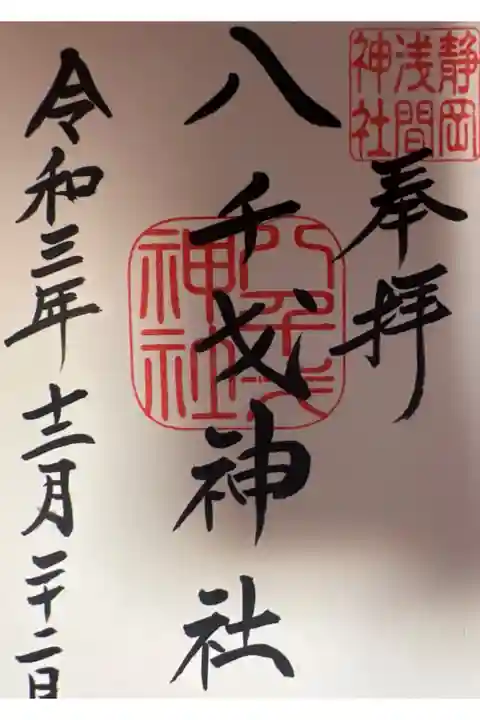 静岡
浅間
神社
奉拝
八千戈神社
八千戈
神社
令和三年十二月二十二日